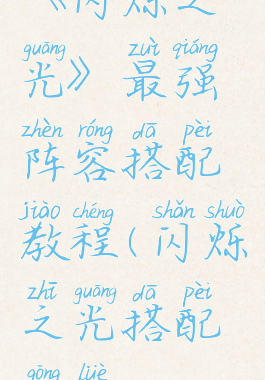 《闪烁之
guāng zuì qiáng
光》 最强
zhèn róng dā pèi
阵容搭配
jiào chéng shǎn shuò
教程(闪烁
zhī guāng dā pèi
之光搭配
gōng lüè